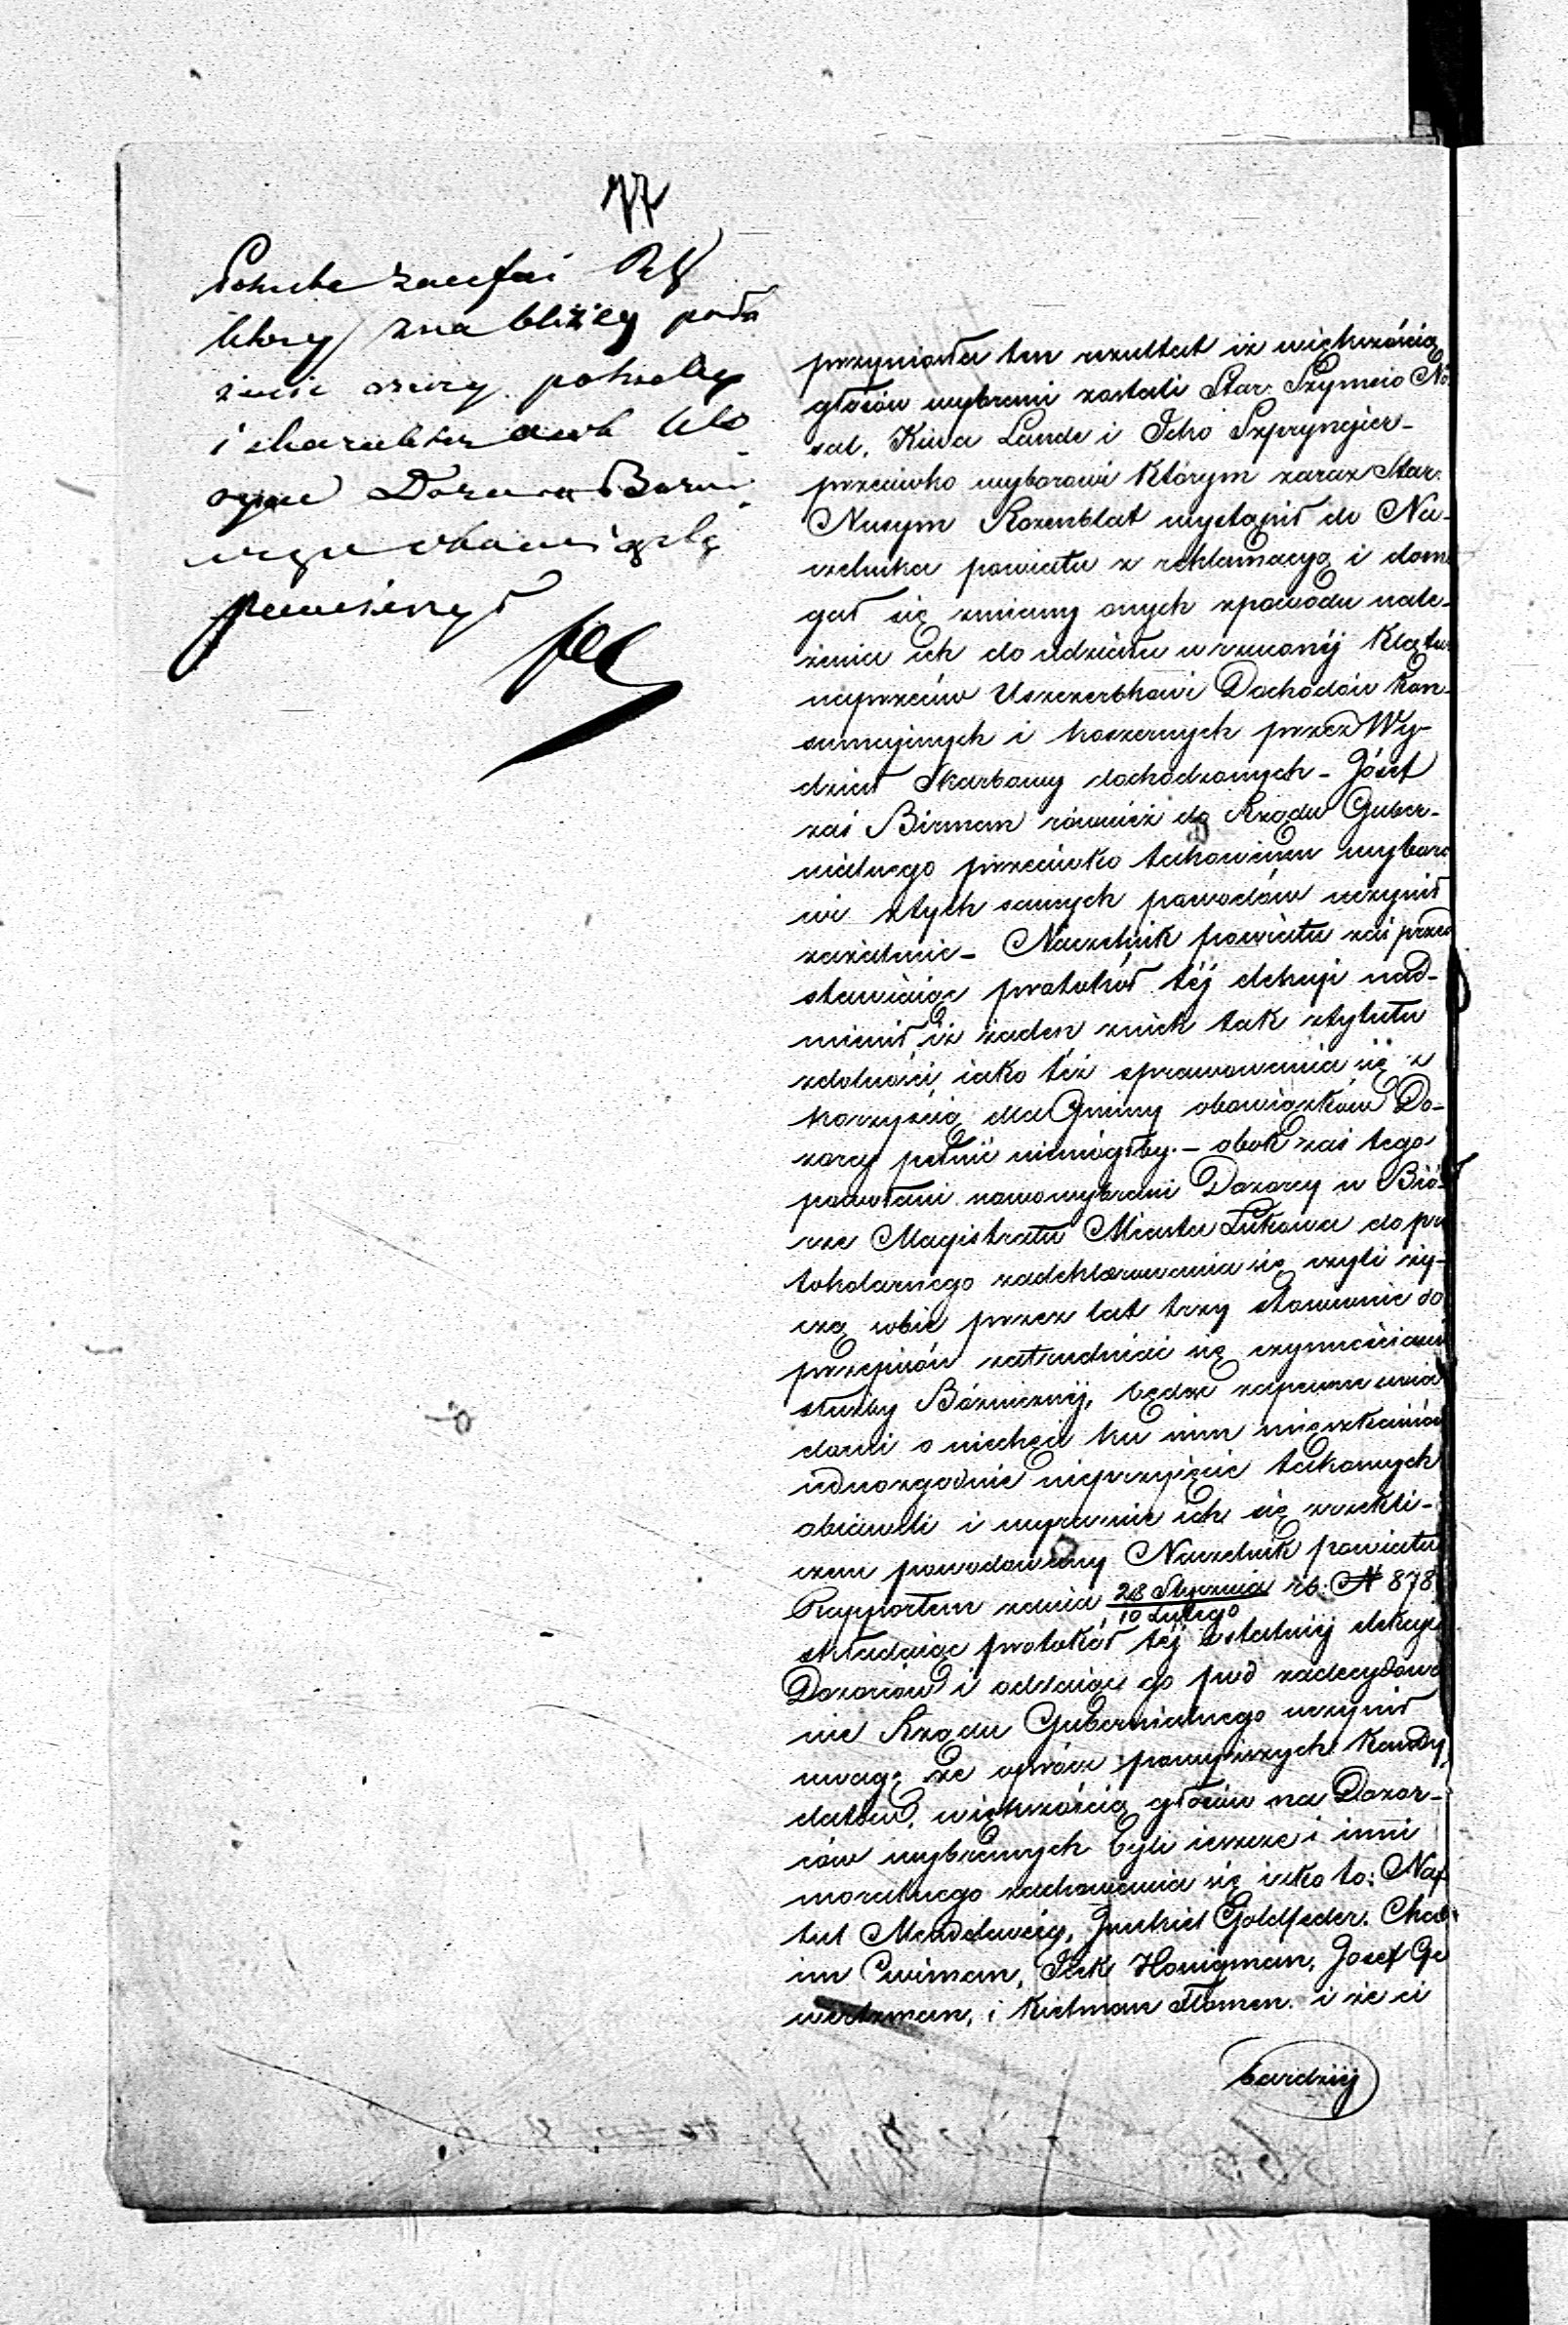 77
który zna bliżey poło
żenie
i charakter osób
Dozoru Bożni
obowiązku
powierzył
przyniosła ten rezultat iż większością
głosów wybrani zostali Star. Szymcio No
sal, Kiwa Lande i Icko Szpryngier –
przeciwko wyborowi którym zaraz Star.
Nusym Rozenblat wystąpił do Na-
czelnika powiatu z reklamacyą i doma
gał się zmiany onych zpowodu nale-
żenia ich do udziału w rzuconéj klątw
naprzeciw Uszczerbkowi Dochodów kon-
sumcyjnych i koszernych przez Wy-
dział Skarbowy dochodzonych – Józef
zaś Birman również do Rządu Guber-
nialnego przeciwko takowemu wyboro
wi ztych samych powodów uczynił
zażalenie – Naczelnik powiatu zaś przed
stawiaiąc protokół téj elekcji nad-
mienił, iż żaden znich tak ztytułu
zdolności iako téż sprawowania się z
korzyścią dla Gminy obowiązków Do-
zorcy pełnić niemógłby. – obok zaś tego
powołani nowowybrani Dozorcy w Bió-
rze Magistratu Miasta Łukowa do pro
tokolarnego zadeklarowania się czyli ży-
czą sobie przez lat trzy stosownie do
przepisów zatrudniać się czynnościami
służby Bóżniczéj, będąc zapewne uwia
domi o niechęci ku nim mieszkańców
iednozgodnie nieprzyięcie takowych
obiawili i wyraźnie ich się zrzekli –
czem powodowany Naczelnik powiatu
Rapportem zdnia 28 Stycznia/10 Lutego rb. N 878
składaiąc protokół téj ostatniéj elekcyi
Dozorców i oddaiąc go pod zadecydowa
nie Rządu Gubernialnego uczynił
uwagę że oprócz powyższych Kandy
datów, większością głosów na Dozor-
ców wybranych byli ieszcze i inni
moralnego zachowania się iako to: Naf
tul Mendelowicz, Jnukiel Goldfeder. Cha
im Cwiman, Icek Honigman, Josef Ge
wertzman, i Kielman Tłomen. i że ci
bardziéj